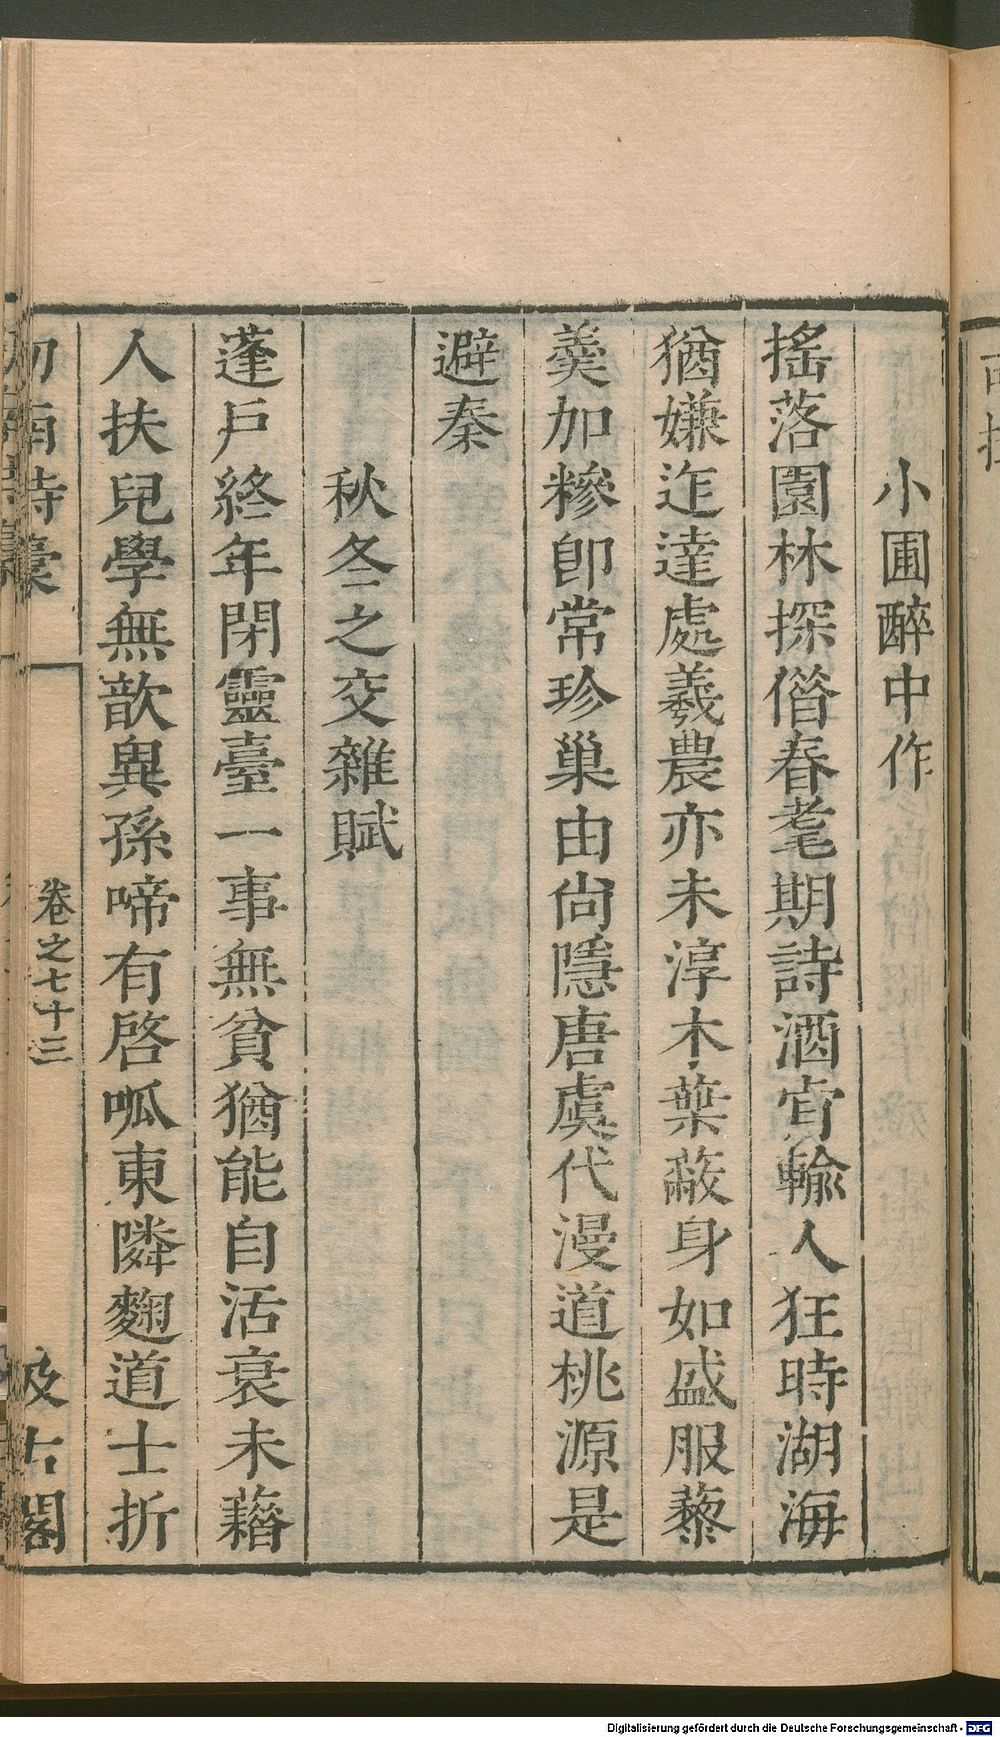 小圃醉中作
搖落園林探偺春耄期詩酒宵輸人狂時湖海
猶嫌迮達處羲農亦未淳木葉蔽身如盛服藜
羹加糝卽常珍巢由尙隱唐虞代漫道桃源是
避秦
秋冬之交雜賦
蓬戶終年閉靈臺一事無貧猶能自活衰未藉
人扶兒學無歆異孫啼有啓呱東隣麴道士折
劍南詩稾
卷之七十三
汲古閣
Digitalisierung gefördert durch die Deutsche Forschungsgemeinschaft - DFG